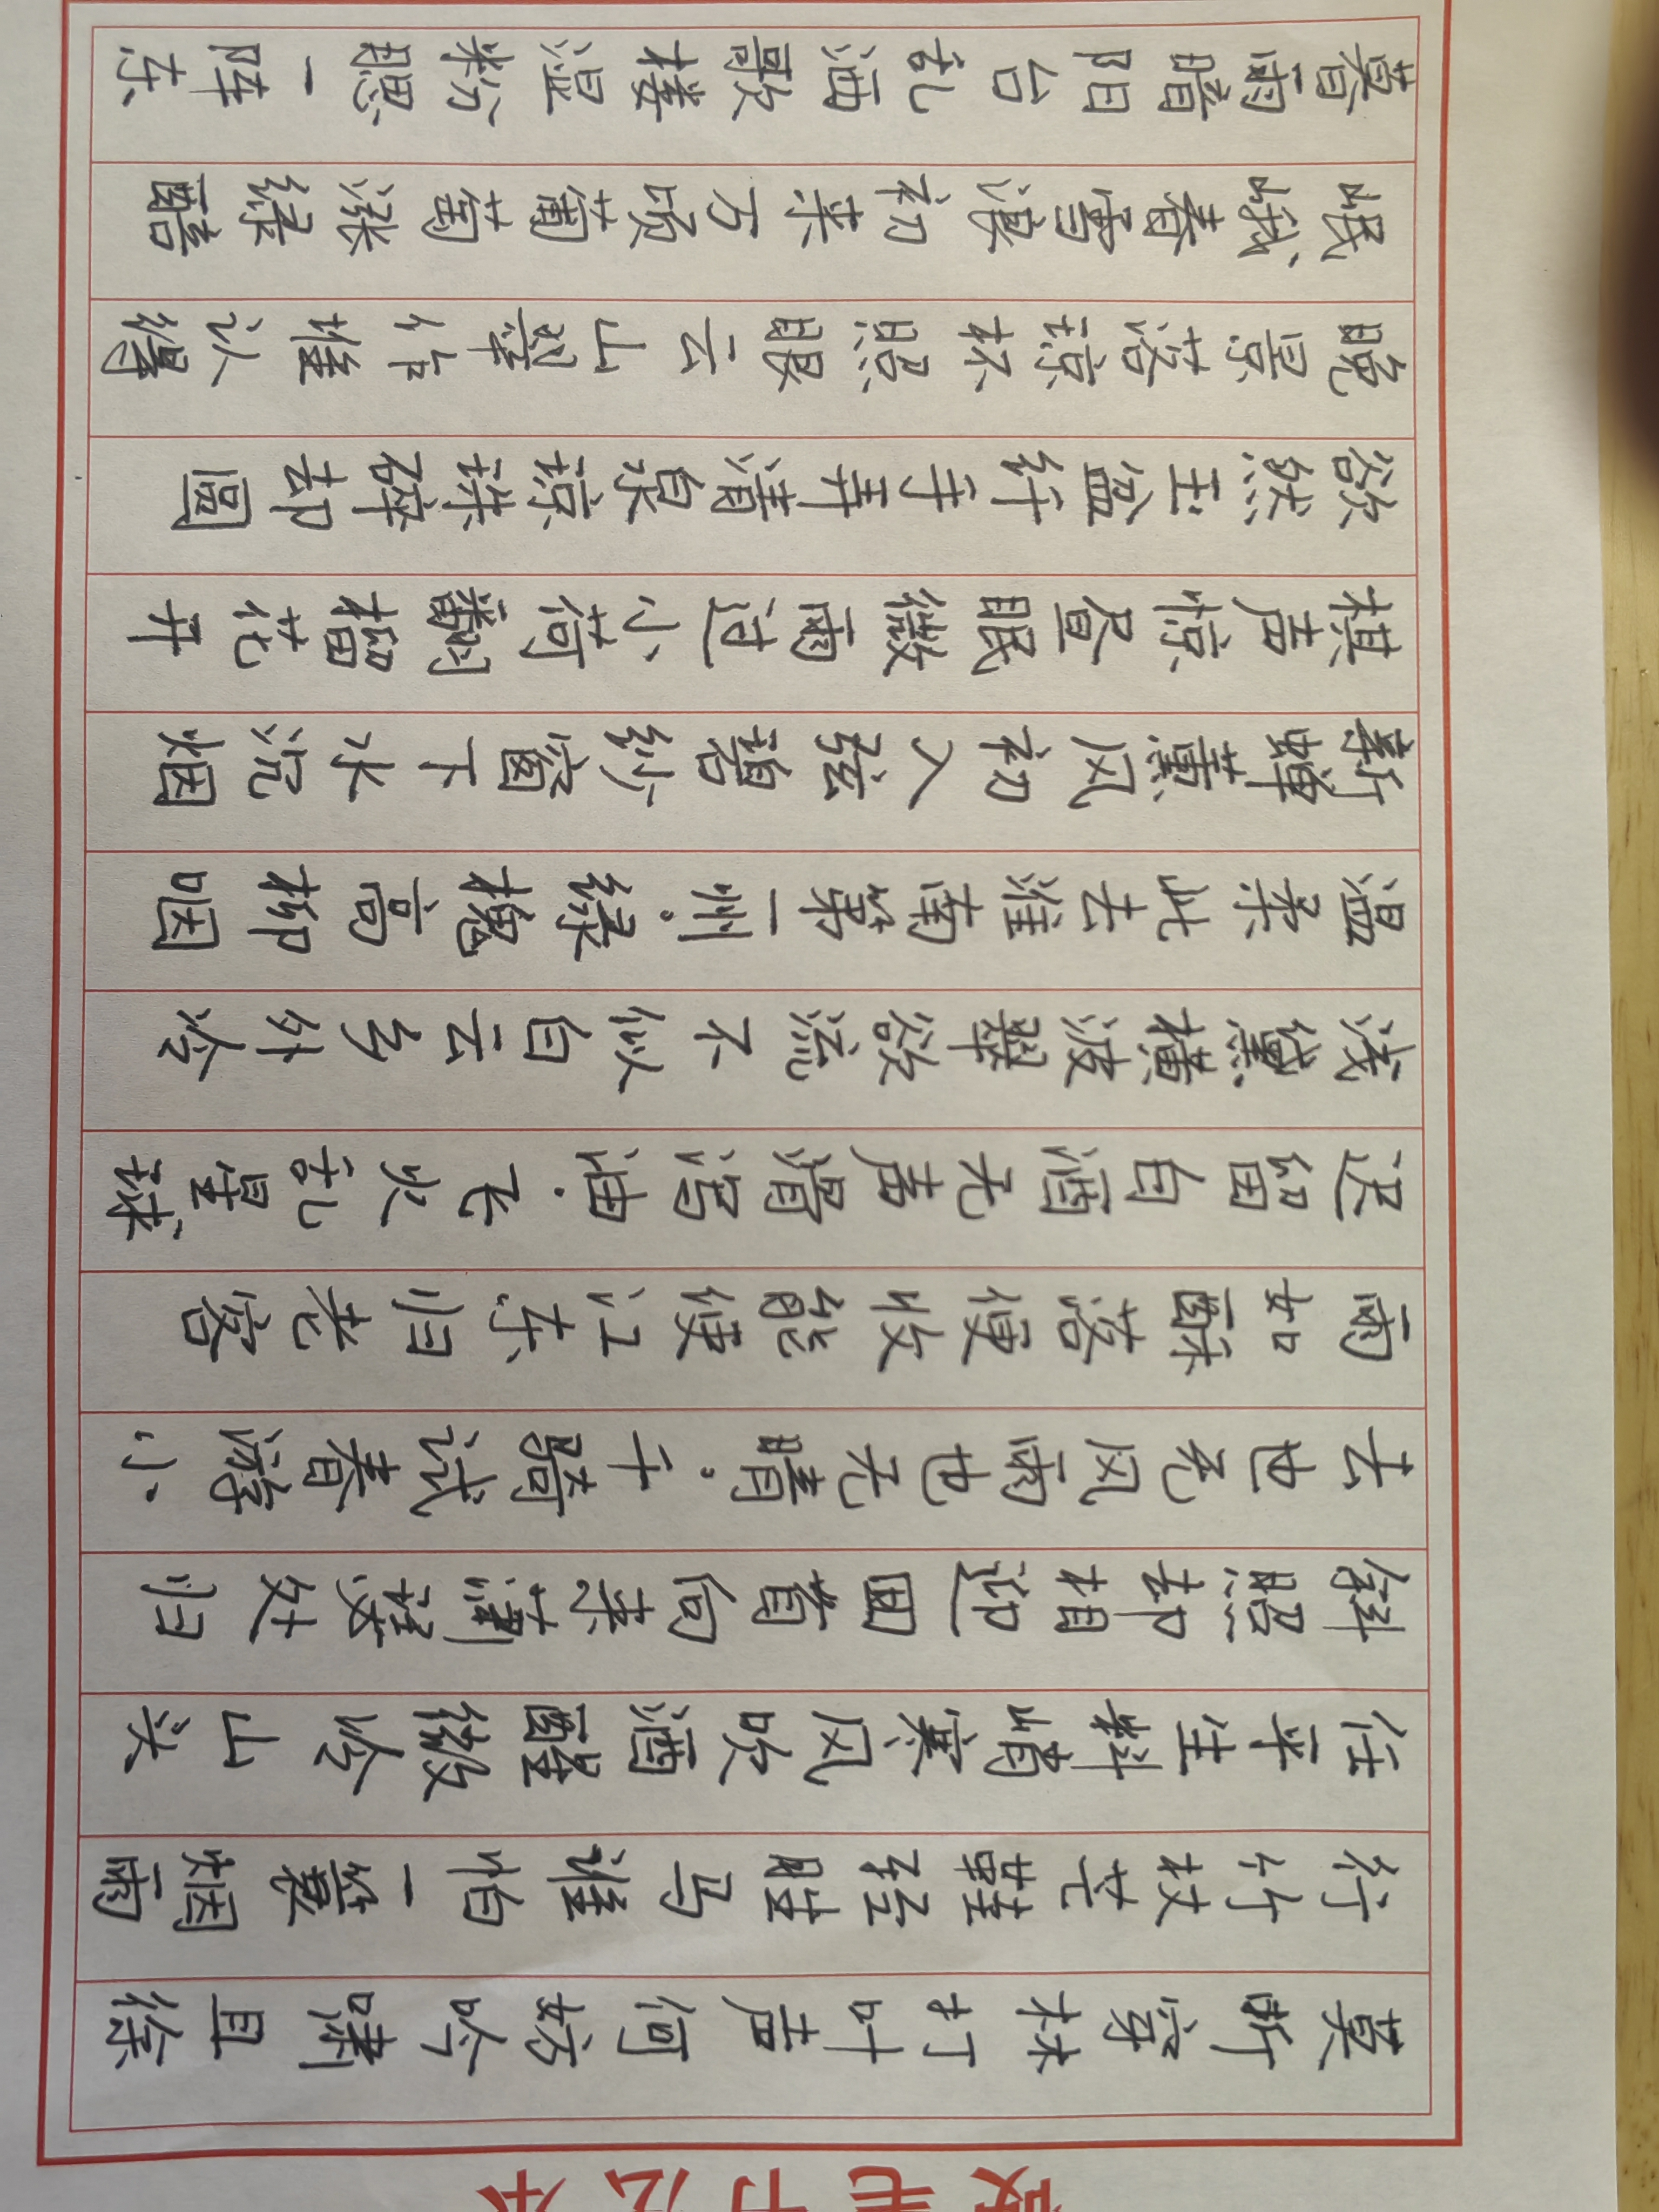 硬笔书法本
莫听穿林打叶声何妨吟啸且徐
行竹杖芒鞋轻胜马谁怕一蓑烟雨
任平生料峭寒风吹酒醒微冷山头
斜照却相迎回首向来萧瑟处归
去也无风雨也无晴.千骑试春游小
雨如酥落便收能使江东归老客
迟留白酒无声滑泻油.飞火乱星球
浅黛横波翠欲流不似白云乡外冷
温柔此去淮南第一州.绿槐高柳咽
新蝉薰风初入弦碧纱窗下水沉烟
棋声惊昼眠微雨过小荷翻榴花开
欲然玉盆纤手弄清泉琼珠碎却圆
晚景落琼杯照眼云山翠作堆认得
岷峨春雪浪初来万顷葡萄涨绿醅
暮雨暗阳台乱洒歌楼湿粉腮一阵东